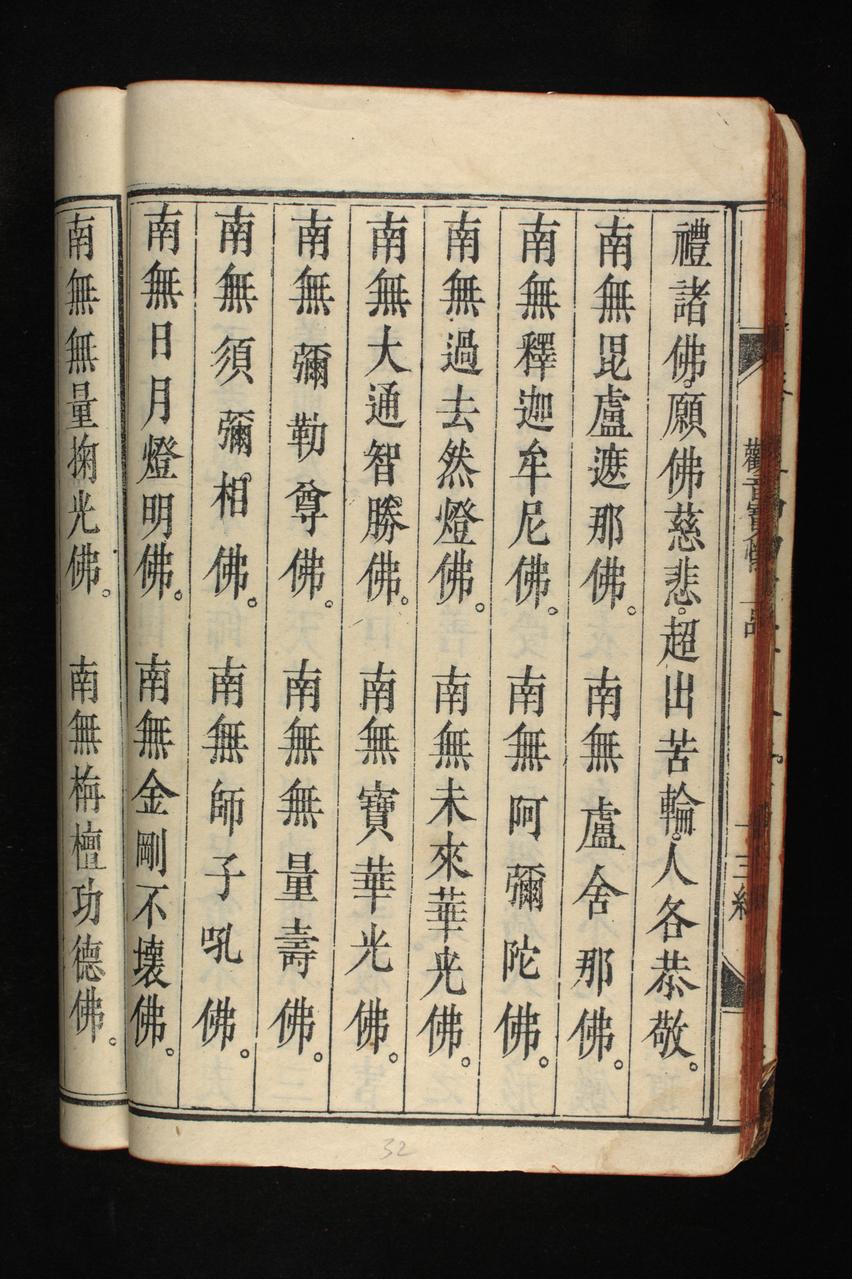 禮諸佛。願佛慈悲。超出苦輪。人各恭敬。
南無毘盧遮那佛。南無盧舍那佛。
南無釋迦牟尼佛。南無阿彌陀佛。
南無過去然燈佛。南無未來華光佛。
南無大通智勝佛。南無寶華光佛。
南無彌勒尊佛。南無無量壽佛。
南無須彌相佛。南無師子吼佛。
南無日月燈明佛。南無金剛不壞佛。
南無無量掬光佛。南無栴檀功德佛。
十三終
32